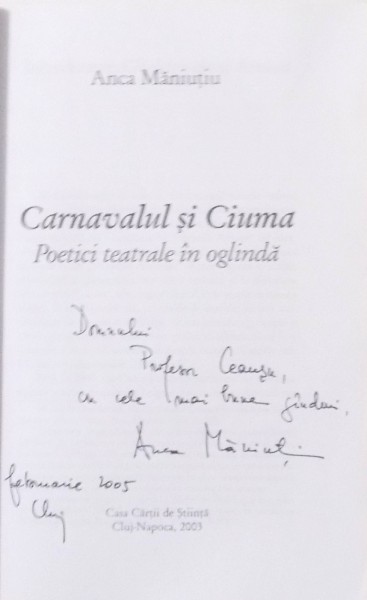 Anca Măniuțiu
Carnavalul și Ciuma
Poetici teatrale în oglindă
Domnului
Profesor
cu cele mai bune gînduri,
Anca Măniuțiu
februarie 2005
Cluj
Casa Cărții de Știință
Cluj-Napoca, 2003